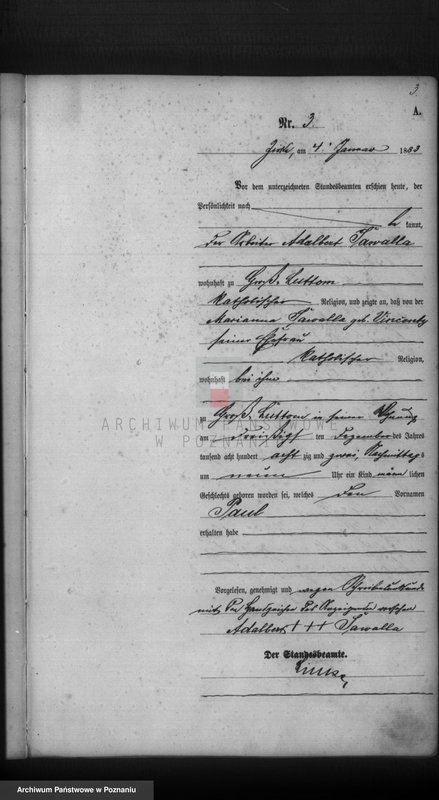 3.
A.
Nr. 3.
Zirke, am 4. Januar 1883
Vor dem unterzeichneten Standesbeamten erschien heute, der
Persönlichkeit nach
be kannt,
der Arbeiter Adalbert Tawalla
wohnhaft zu Groß Luttom
katholischer Religion, und zeigte an, daß von der
Marianna Tawalla geb.
seiner Ehefrau
katholischer Religion,
wohnhaft bei ihm
zu Groß Luttom in seiner Wohnung
am dreißigsten ten Dezember des Jahres
tausend acht hundert acht zig und zwei, Nachmittags
um neun Uhr ein Kind männ lichen
Geschlechts geboren worden sei, welches den Vornamen
Paul
erhalten habe
Vorgelesen, genehmigt und wegen Schreibensunkunde
mit den Handzeichen des Anzeigenden versehen
Adalbert +++ Tawalla
Der Standesbeamte.
ARCHIWUM PAŃSTWOWE
W POZNANIU
Archiwum Państwowe w Poznaniu